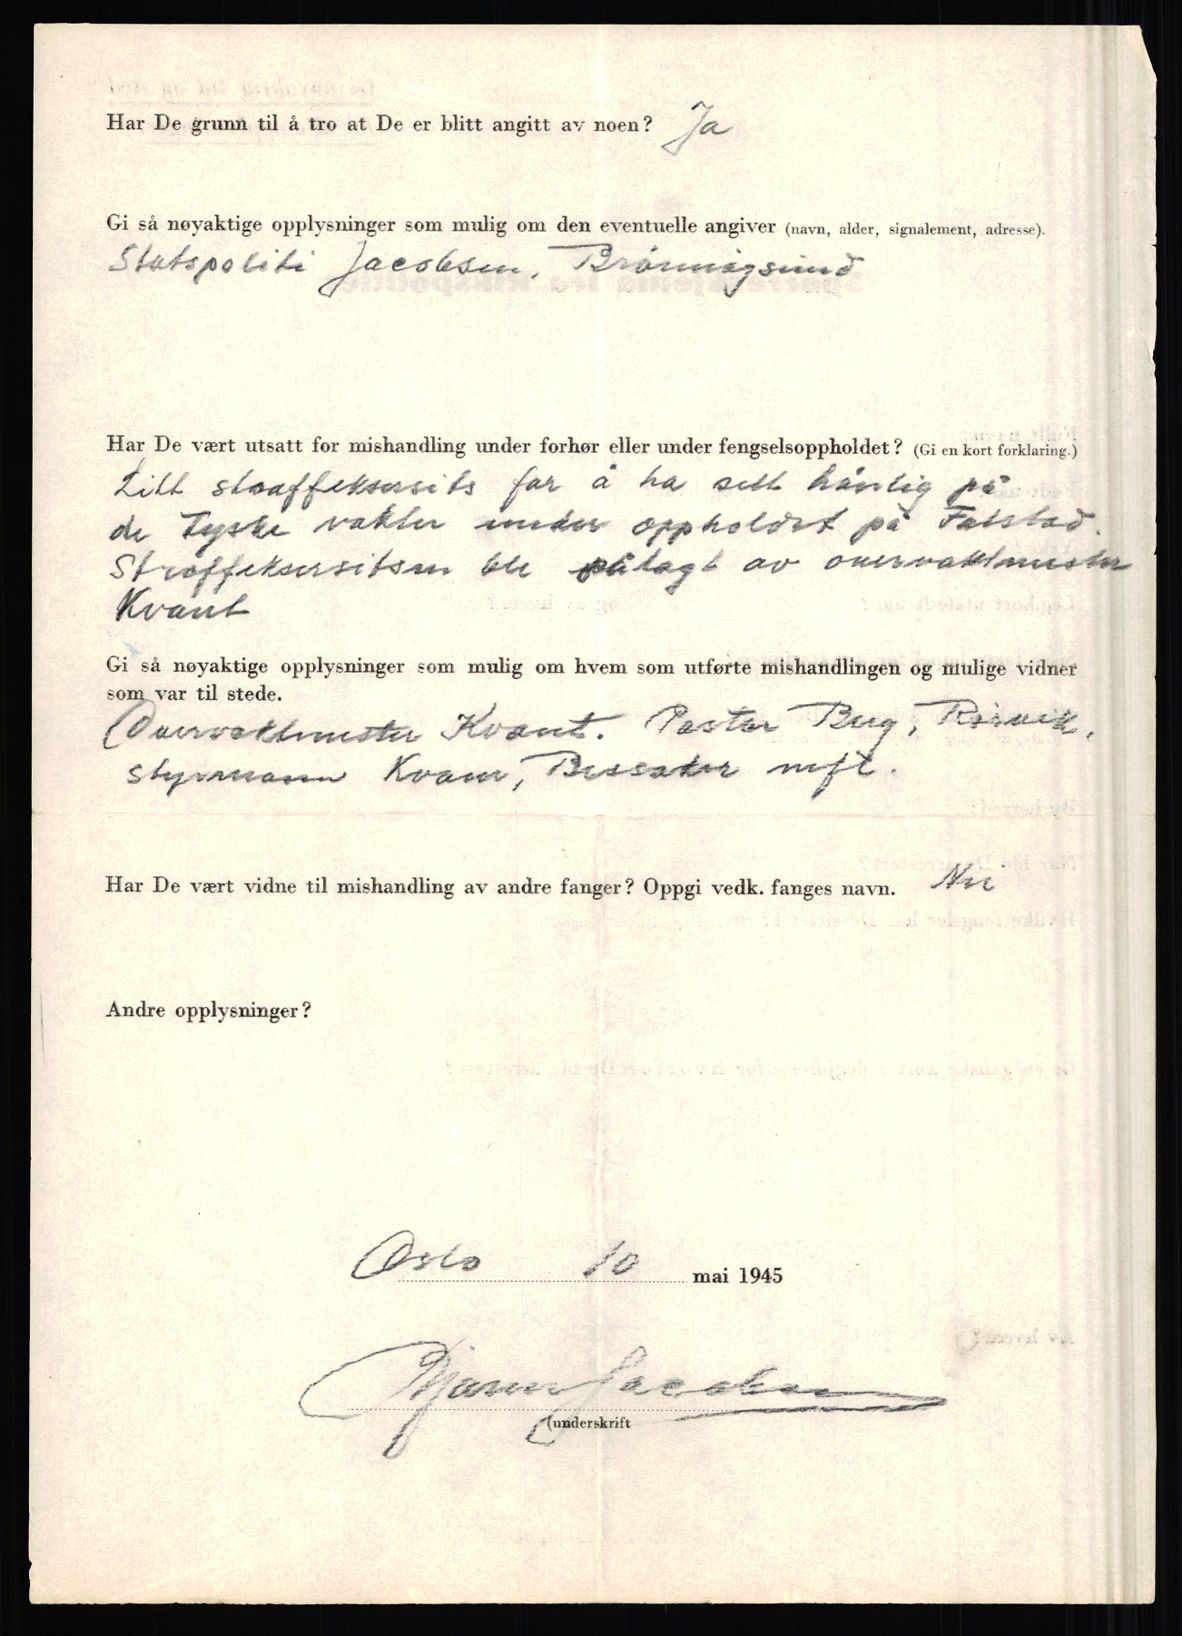 Har De grunn til å tro at De er blitt angitt av noen? Ja
Gi så nøyaktige opplysninger som mulig om den eventuelle angiver (navn, alder, signalement, adresse).
Statspoliti Jacobsen, Brönnøgsund
Har De vært utsatt for mishandling under forhør eller under fengselsoppholdet? (Gi en kort forklaring.)
Litt straffeksersits for å ha sett hånlig på
de tyske vakter under oppholdet på Falstad.
Straffeksersitsen ble pålagt av overvaktmester
Kvant
Gi så nøyaktige opplysninger som mulig om hvem som utførte mishandlingen og mulige vidner
som var til stede.
Overvaktmester Kvant. Pastor Berg, Rørvik,
styrmann Kvam, Bessaker mfl.
Har De vært vidne til mishandling av andre fanger? Oppgi vedk. fanges navn. Nei
Andre opplysninger?
Oslo 10 mai 1945
Bjarne Jacobsen
(underskrift